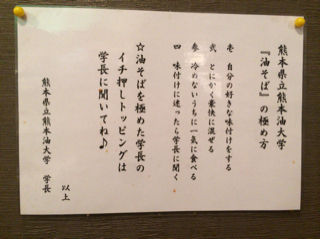 熊本県立熊本油大学
『油そば』の極め方
壱 自分の好きな味付けをする
弐 とにかく豪快に混ぜる
参 冷めないうちに一気に食べる
四 味付けに迷ったら学長に聞く
☆油そばを極めた学長の
イチ押しトッピングは
学長に聞いてね♪
以上
熊本県立熊本油大学 学長